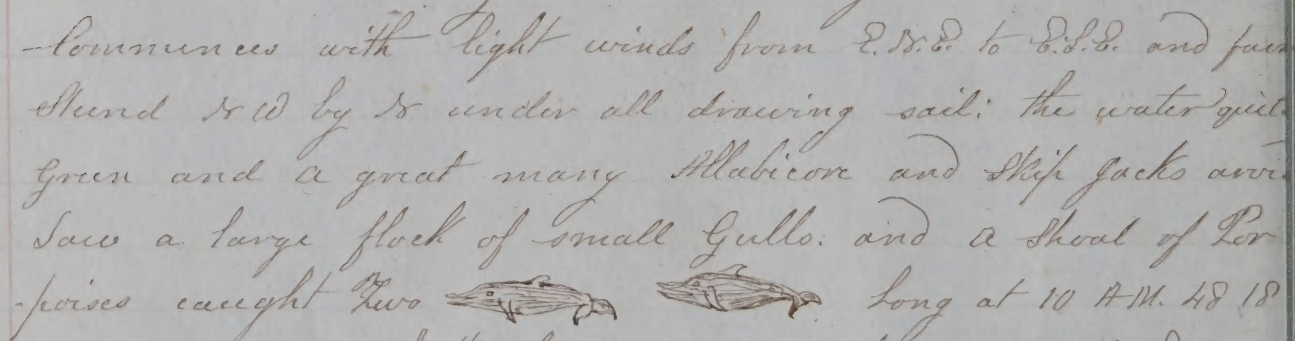 Commences with light winds from E.N.E. to E.S.E. and
Stund N W by N under all drawing sail: the water
Green and a great many Allabicore and Skip Jacks
Saw a large flock of small Gulls. and a Shoal of Por
-poises caught Two Long at 10 A-M. 48 18